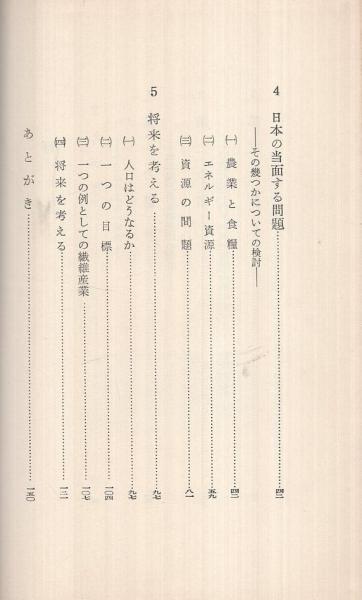 4 日本の当面する問題……四二
――その幾つかについての検討――
㈠ 農業と食糧……四二
㈡ エネルギー資源……五九
㈢ 資源の問題……八一
5 将来を考える……九七
㈠ 人口はどうなるか……九七
㈡ 一つの目標……一〇四
㈢ 一つの例としての繊維産業……一〇七
㈣ 将来を考える……一三一
あとがき……一五〇